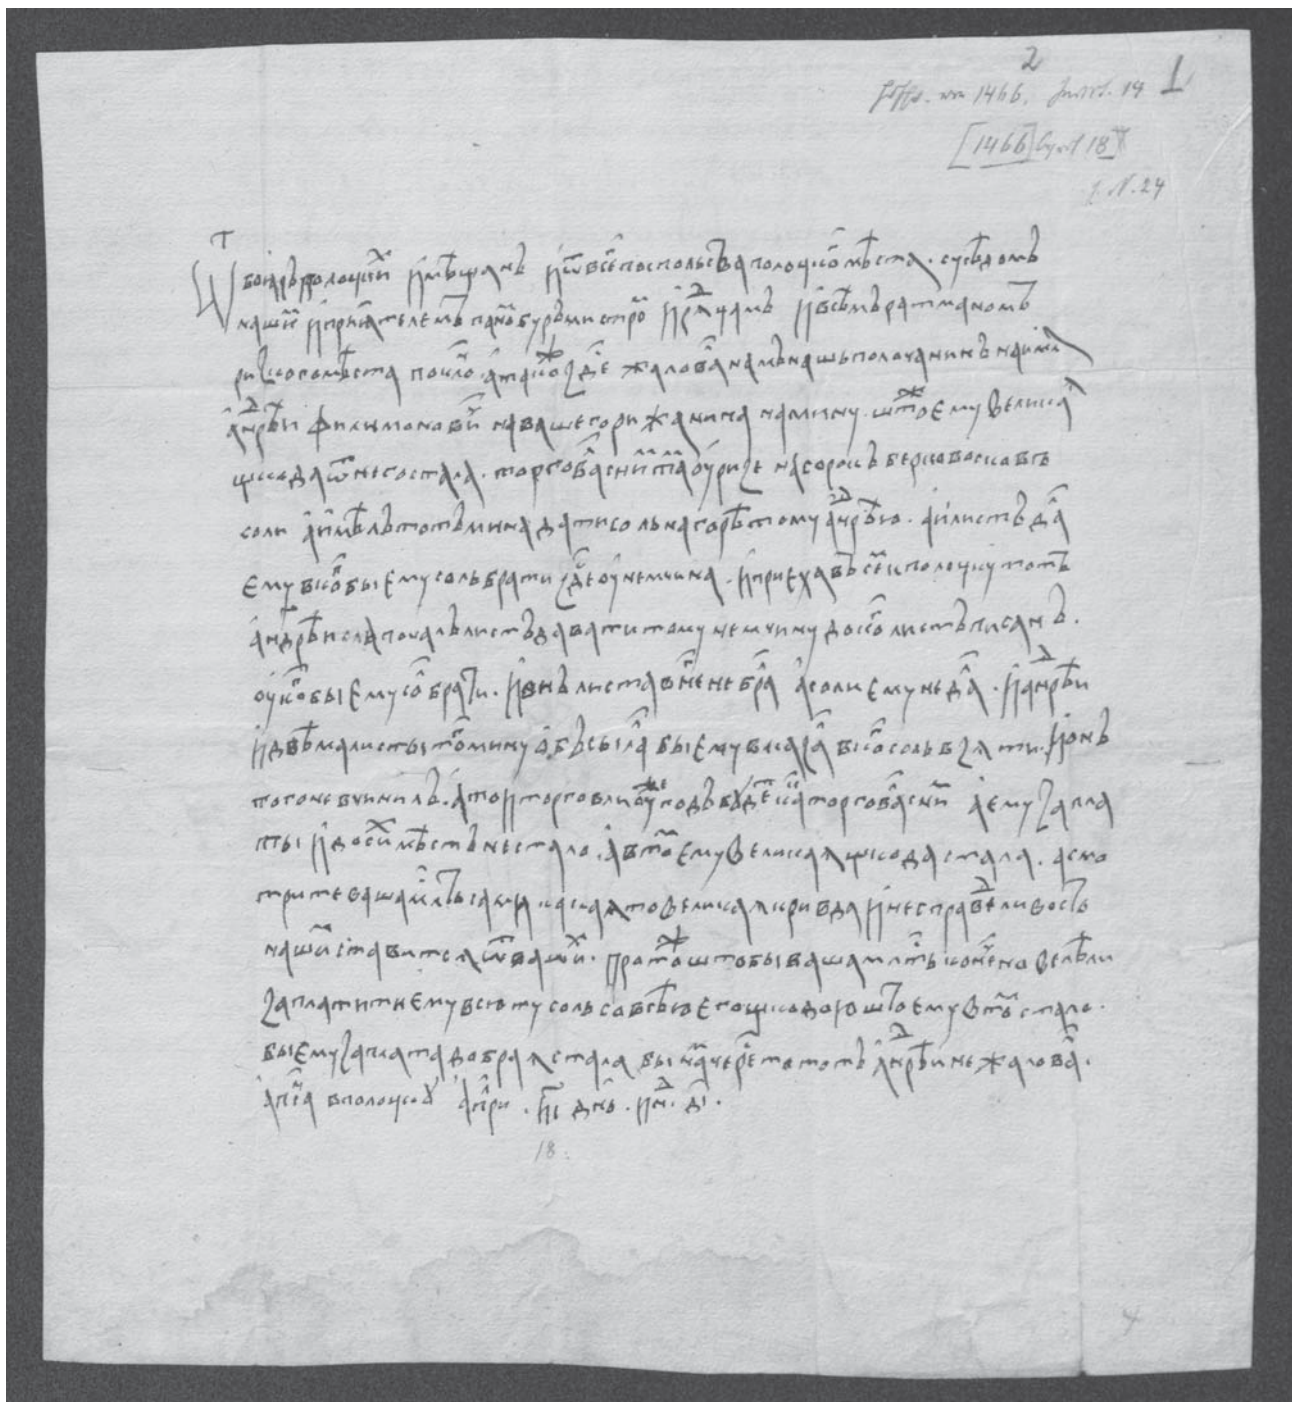 2
1466. 19 1
[1466] 18
N. 24
Ѿ боꙗръ полоцкиⷯ и мѣщанъ и ѿ всеⷢ҇ поспольства полоцкоⷢ҇ мѣста. сусѣдомъ
нашиⷨ и приꙗтелемъ паноⷨ буръмистроⷨ и радцамъ и всѣмъ ратманомъ
ризкого мѣста поклоⷩ. а такоⷤ зде жаловаⷧ намъ нашь полочанинъ на имѧ
аⷩдрѣи филимоновиⷱ на вашего рижанина на мину. штоⷤ ему великаꙗ
шкода ѿ него стала. торговаⷧ с ниⷨ таⷨ оу ризе на сорокъ берковосковъ
соли а имѣлъ тотъ мина дати соль на горѣ тому аⷩдрѣю. а и листъ даⷧ
ему в коⷢ҇ бы ему соль брати зде оу немчина. и приехавъ семⷨ к полоцку тотъ
андрѣи слъ почалъ листъ давати тому немчину до коⷢ҇ листъ писанъ.
оу коⷢ҇ бы ему соⷧ брати. и онъ листа в неⷢ҇ не браⷧ а соли ему не даⷧ. и аⷩдрѣи
и двѣма листы тоⷨ мину обьсылаⷧ бы ему вказаⷧ в коⷢ҇ соль взѧти. и онъ
того не вчинилъ. а то и торговли оуже годъ будеⷮ каⷦ торговаⷧ с ниⷨ а ему заплаты
и до сиⷯ мѣстъ не стало. а в тоⷨ ему великаꙗ шкода стала. а смо
трите ваша мл҇ть сами какаꙗ то великаꙗ кривда и несправедливость
нашиⷨ ставитсѧ ѿ вашиⷯ. про тоⷤ што бы ваша мл҇ть конечно велѣли
заплатити ему всю ту соль со всѣю его шкодою што ему в тоⷨ стало.
бы ему заплата добраꙗ стала бы наⷨ через то тотъ аⷩдрѣи не жаловаⷧ.
а псаⷩ в полоцку априⷧ. и҃і днь. инⷣ. д҃і.
18.
4